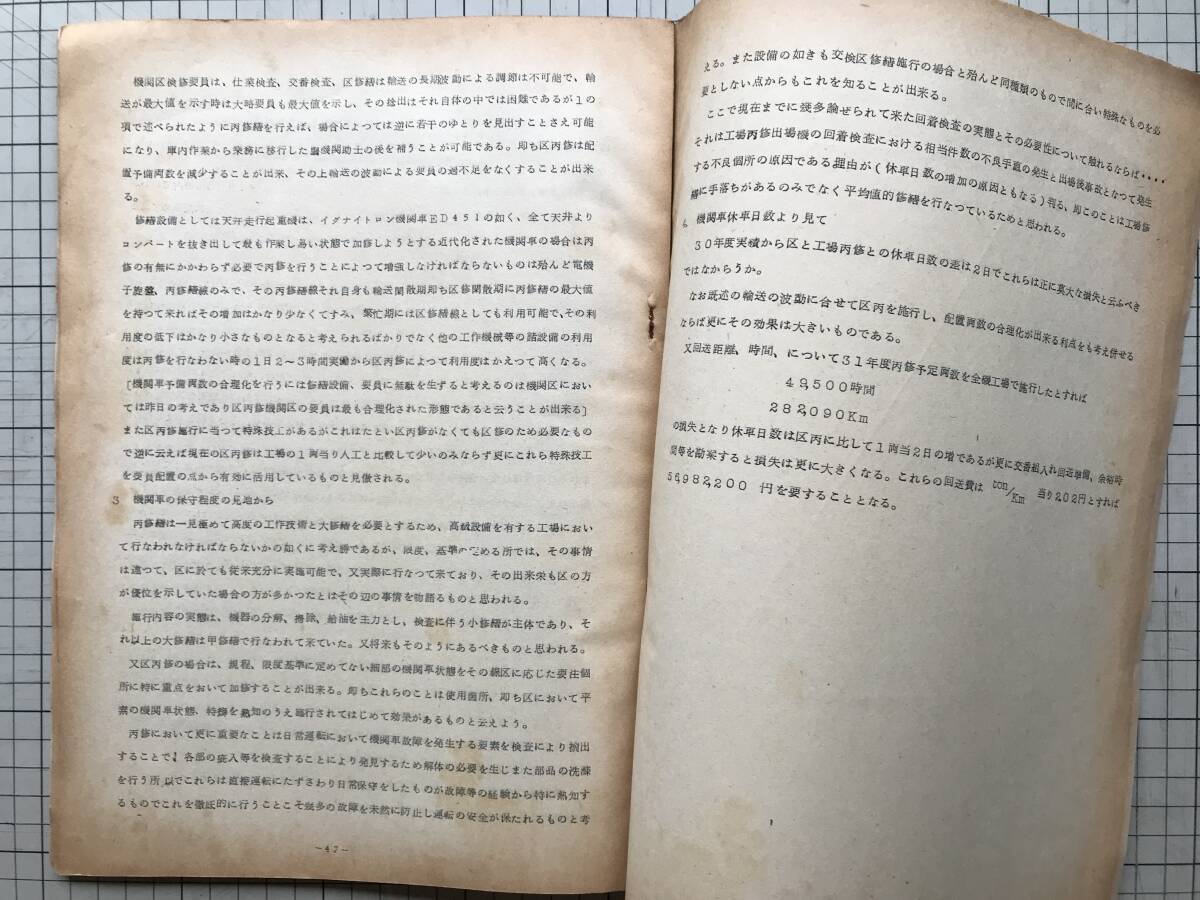 機関区検修要員は、仕業検査、交番検査、区修繕は輸送の長期波動による調節は不可能で、輸
送が最大値を示す時は大略要員も最大値を示し、その捻出はそれ自体の中では困難であるが1の
項で述べられたように丙修繕を行えば、場合によつては逆に若干のゆとりを見出すことさえ可能
になり、庫内作業から乗務に移行した機関助士の後を補うことが可能である。即ち区丙修は配
置予備両数を減少することが出来、その上輸送の波動による要員の過不足をなくすることが出来
る。
修繕設備としては天井走行起重機は、イグナイトロン機関車ED451の如く、全て天井より
コンバートを抜き出して最も作業し易い状態で加修しようとする近代化された機関車の場合は丙
修の有無にかかわらず必要で丙修を行うことによつて増強しなければならないものは殆んど電機
子旋盤、丙修繕線のみで、その丙修繕線それ自身も輸送閑散期即ち区修閑散期に丙修繕の最大値
を持つて来ればその増加はかなり少なくてすみ、繁忙期には区修繕線としても利用可能で、その利
用度の低下はかなり小さなものとなると考えられるばかりでなく他の工作機械等の諸設備の利用
度は丙修を行なわない時の1日2～3時間実働から区丙修によつて利用度はかえつて高くなる。
[機関車予備両数の合理化を行うには修繕設備、要員に無駄を生ずると考えるのは機関区におい
ては昨日の考えであり区丙修機関区の要員は最も合理化された形態であると云うことが出来る]
また区丙修施行に当つて特殊技工があるがこれはたとい区丙修がなくても区修のため必要なもの
で逆に云えば現在の区丙修は工場の1両当り人工と比較して少いのみならず更にこれら特殊技工
を要員配置の点から有効に活用しているものと見做される。
3 機関車の保守程度の見地から
丙修繕は一見極めて高度の工作技術と大修繕を必要とするため、高級設備を有する工場におい
て行なわれなければならないかの如くに考え勝であるが、限度、基準の定める所では、その事情
は違つて、区に於ても従来充分に実施可能で、又実際に行なつて来ており、その出来栄も区の方
が優位を示していた場合の方が多かつたとはその辺の事情を物語るものと思われる。
施行内容の実態は、機器の分解、掃除、給油を主力とし、検査に伴う小修繕が主体であり、そ
れ以上の大修繕は甲修繕で行なわれて来ていた。又将来もそのようにあるべきものと思われる。
又区丙修の場合は、規程、限度基準に定めてない細部の機関車状態をその線区に応じた要注個
所に特に重点をおいて加修することが出来る。即ちこれらのことは使用箇所、即ち区において平
素の機関車状態、特癖を熟知のうえ施行されてはじめて効果があるものと云えよう。
丙修において更に重要なことは日常運転において機関車故障を発生する要素を検査により摘出
することで、各部の疵入等を検査することにより発見するため解体の必要を生じまた部品の洗滌
を行う所以でこれらは直接運転にたずさわり日常保守をしたものが故障等の経験から特に熟知す
るものでこれを徹底的に行うことこそ幾多の故障を未然に防止し運転の安全が保たれるものと考
－47－
える。また設備の如きも交検区修繕施行の場合と殆んど同種類のもので間に合い特殊なものを必
要としない点からもこれを知ることが出来る。
ここで現在までに幾多論ぜられて来た回着検査の実態とその必要性について触れるならば・・・・
それは工場丙修出場機の回着検査における相当件数の不良手直の発生と出場後事故となつて発生
する不良個所の原因である理由が（休車日数の増加の原因ともなる）判る、即このことは工場修
繕に手落ちがあるのみでなく平均値的修繕を行なつているためと思われる。
4. 機関車休車日数より見て
30年度実績から区と工場丙修との休車日数の差は2日でこれらは正に莫大な損失と云ふべき
ではなからうか。
なお既述の輸送の波動に合せて区丙を施行し、配置両数の合理化が出来る利点をも考え併せる
ならば更にその効果は大きいものである。
又回送距離、時間、について31年度丙修予定両数を全機工場で施行したとすれば
49,500時間
282,090Km
の損失となり休車日数は区丙に比して1両当2日の増であるが更に交番組入れ回送準備、余裕時
間等を勘案すると損失は更に大きくなる。これらの回送費は ton/Km 当り202円とすれば
56,982,200 円を要することとなる。